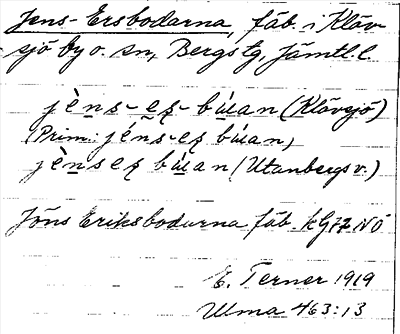 Jens-Ersbodarna, fäb. i Klöv-
sjö by o. sn, Bergs tg, Jämtl. l.
jèns-eʂ-búan (Klövsjö)
(Prim.: jéns-eʂ búan,
jènseʂ búan (Utanbergsv.)
Jöns Eriksbodarna fäb. kG77 NÖ
E. Terner 1919
Ulma 463:13